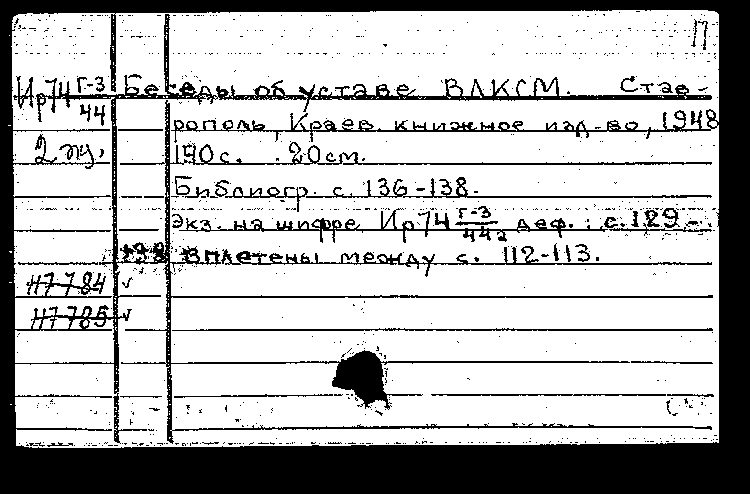 П
Ир74 Г-3/44 Беседы об уставе ВЛКСМ. Став-
рополь, Краев. книжное изд-во, 1948
2 эк. 140 с. 20 см.
Библиогр. с. 136-138.
Экз. на шифре Ир74 Г-3/44а деф.: с. 129-
138 вплетены между с. 112-113.
Н7784 ✓
Н7785 ✓